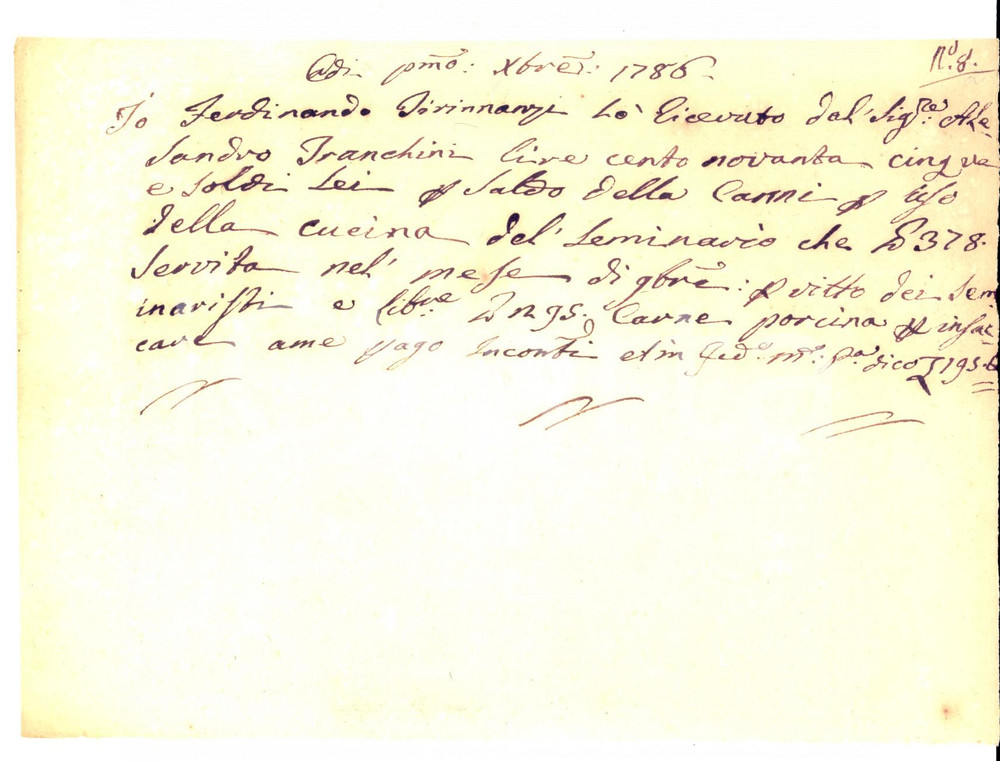 N.º 8.
Adi pmo: Xbre: 1786
Io Ferdinando Brinnanzi hò riceuuto dal Sig.re Ale-
sandro Franchini lire cento novanta cinque
e soldi sei p saldo della Carni p uso
della cucina del' Seminario che 378.
servita nel' mese di 9bre: p vitto dei Sem
inaristi e libre 295. Carne porcina p insac-
care ame pago Incontti et in fed.º m.º p.a dico 195.6